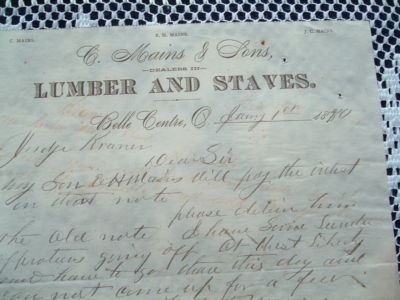 C. MAINS. E. H. MAINS. J. C. MAINS.
C. Mains & Sons,
DEALERS IN
LUMBER AND STAVES.
Belle Centre, O. Jany 1st 1880
Judge Kraner
Dear Sir
my Son E H Mains Will pay the
in that note please
the old note I have Some
going off At West
have to go there this day and
can not come up for a few